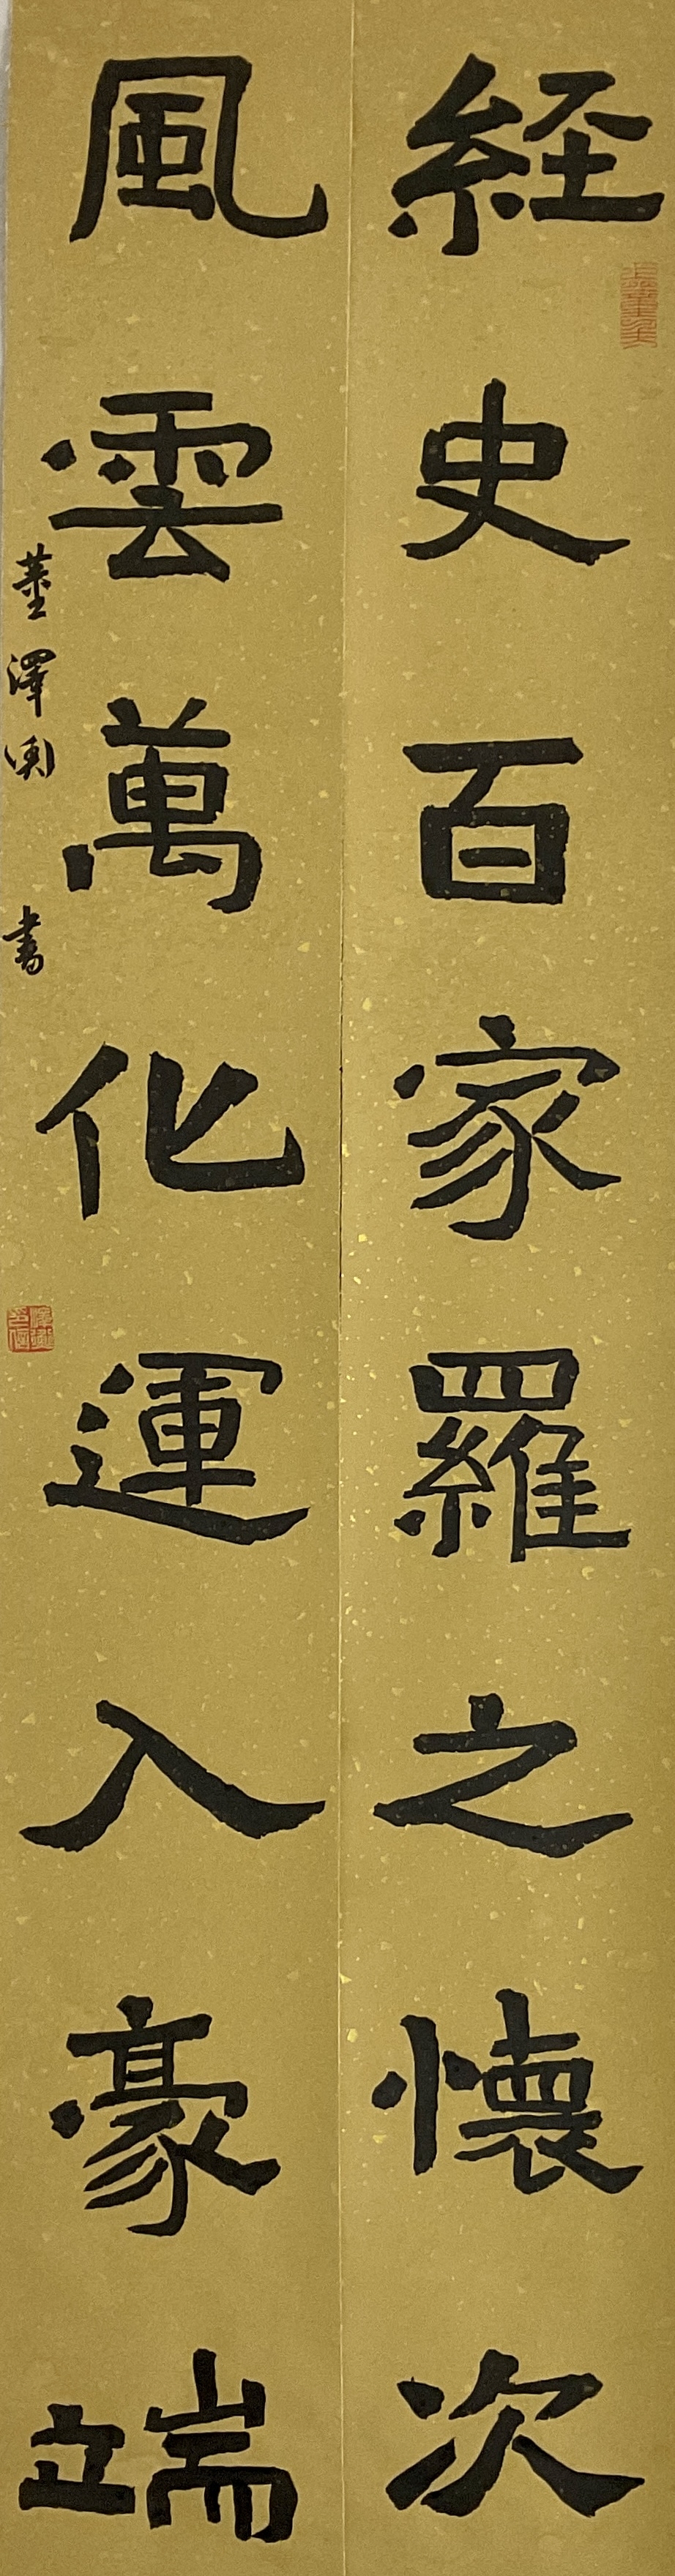 経史百家羅之懷次
風雲萬化運入豪端
董澤衡 書